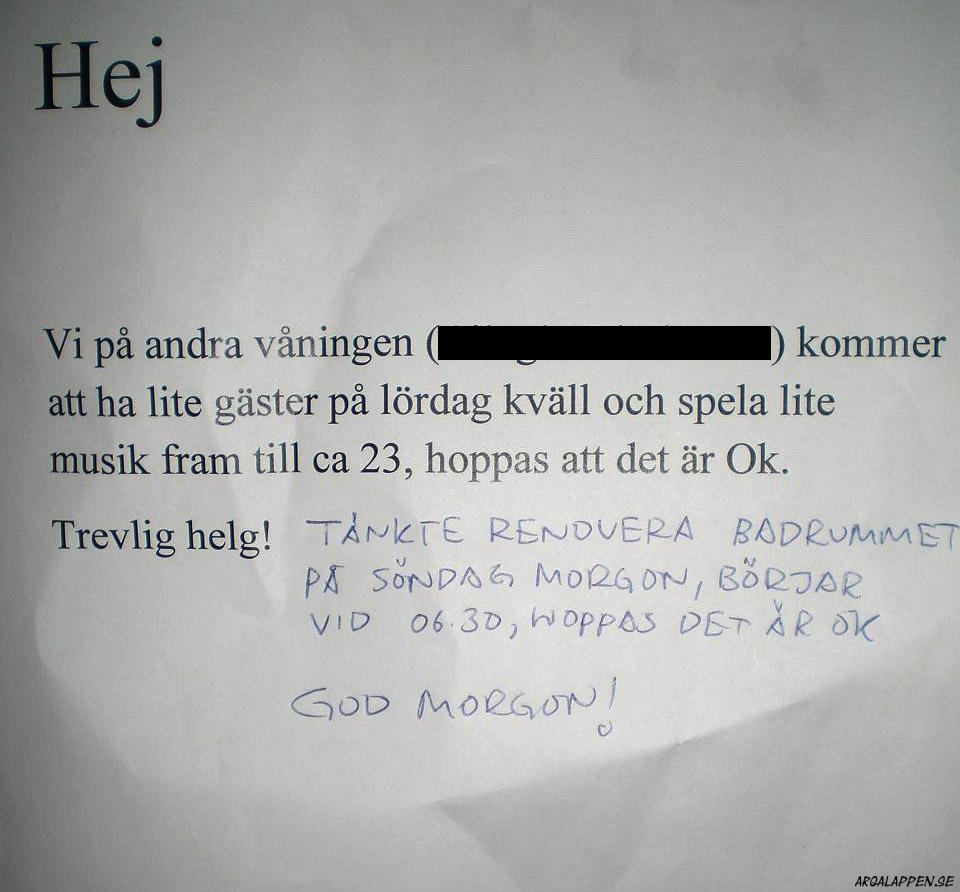 Hej
Vi på andra våningen () kommer
att ha lite gäster på lördag kväll och spela lite
musik fram till ca 23, hoppas att det är Ok.
Trevlig helg! TÄNKTE RENOVERA BADRUMMET
PÅ SÖNDAG MORGON, BÖRJAR
VID 06.30, HOPPAS DET ÄR OK
GOD MORGON!
ARGALAPPEN.SE